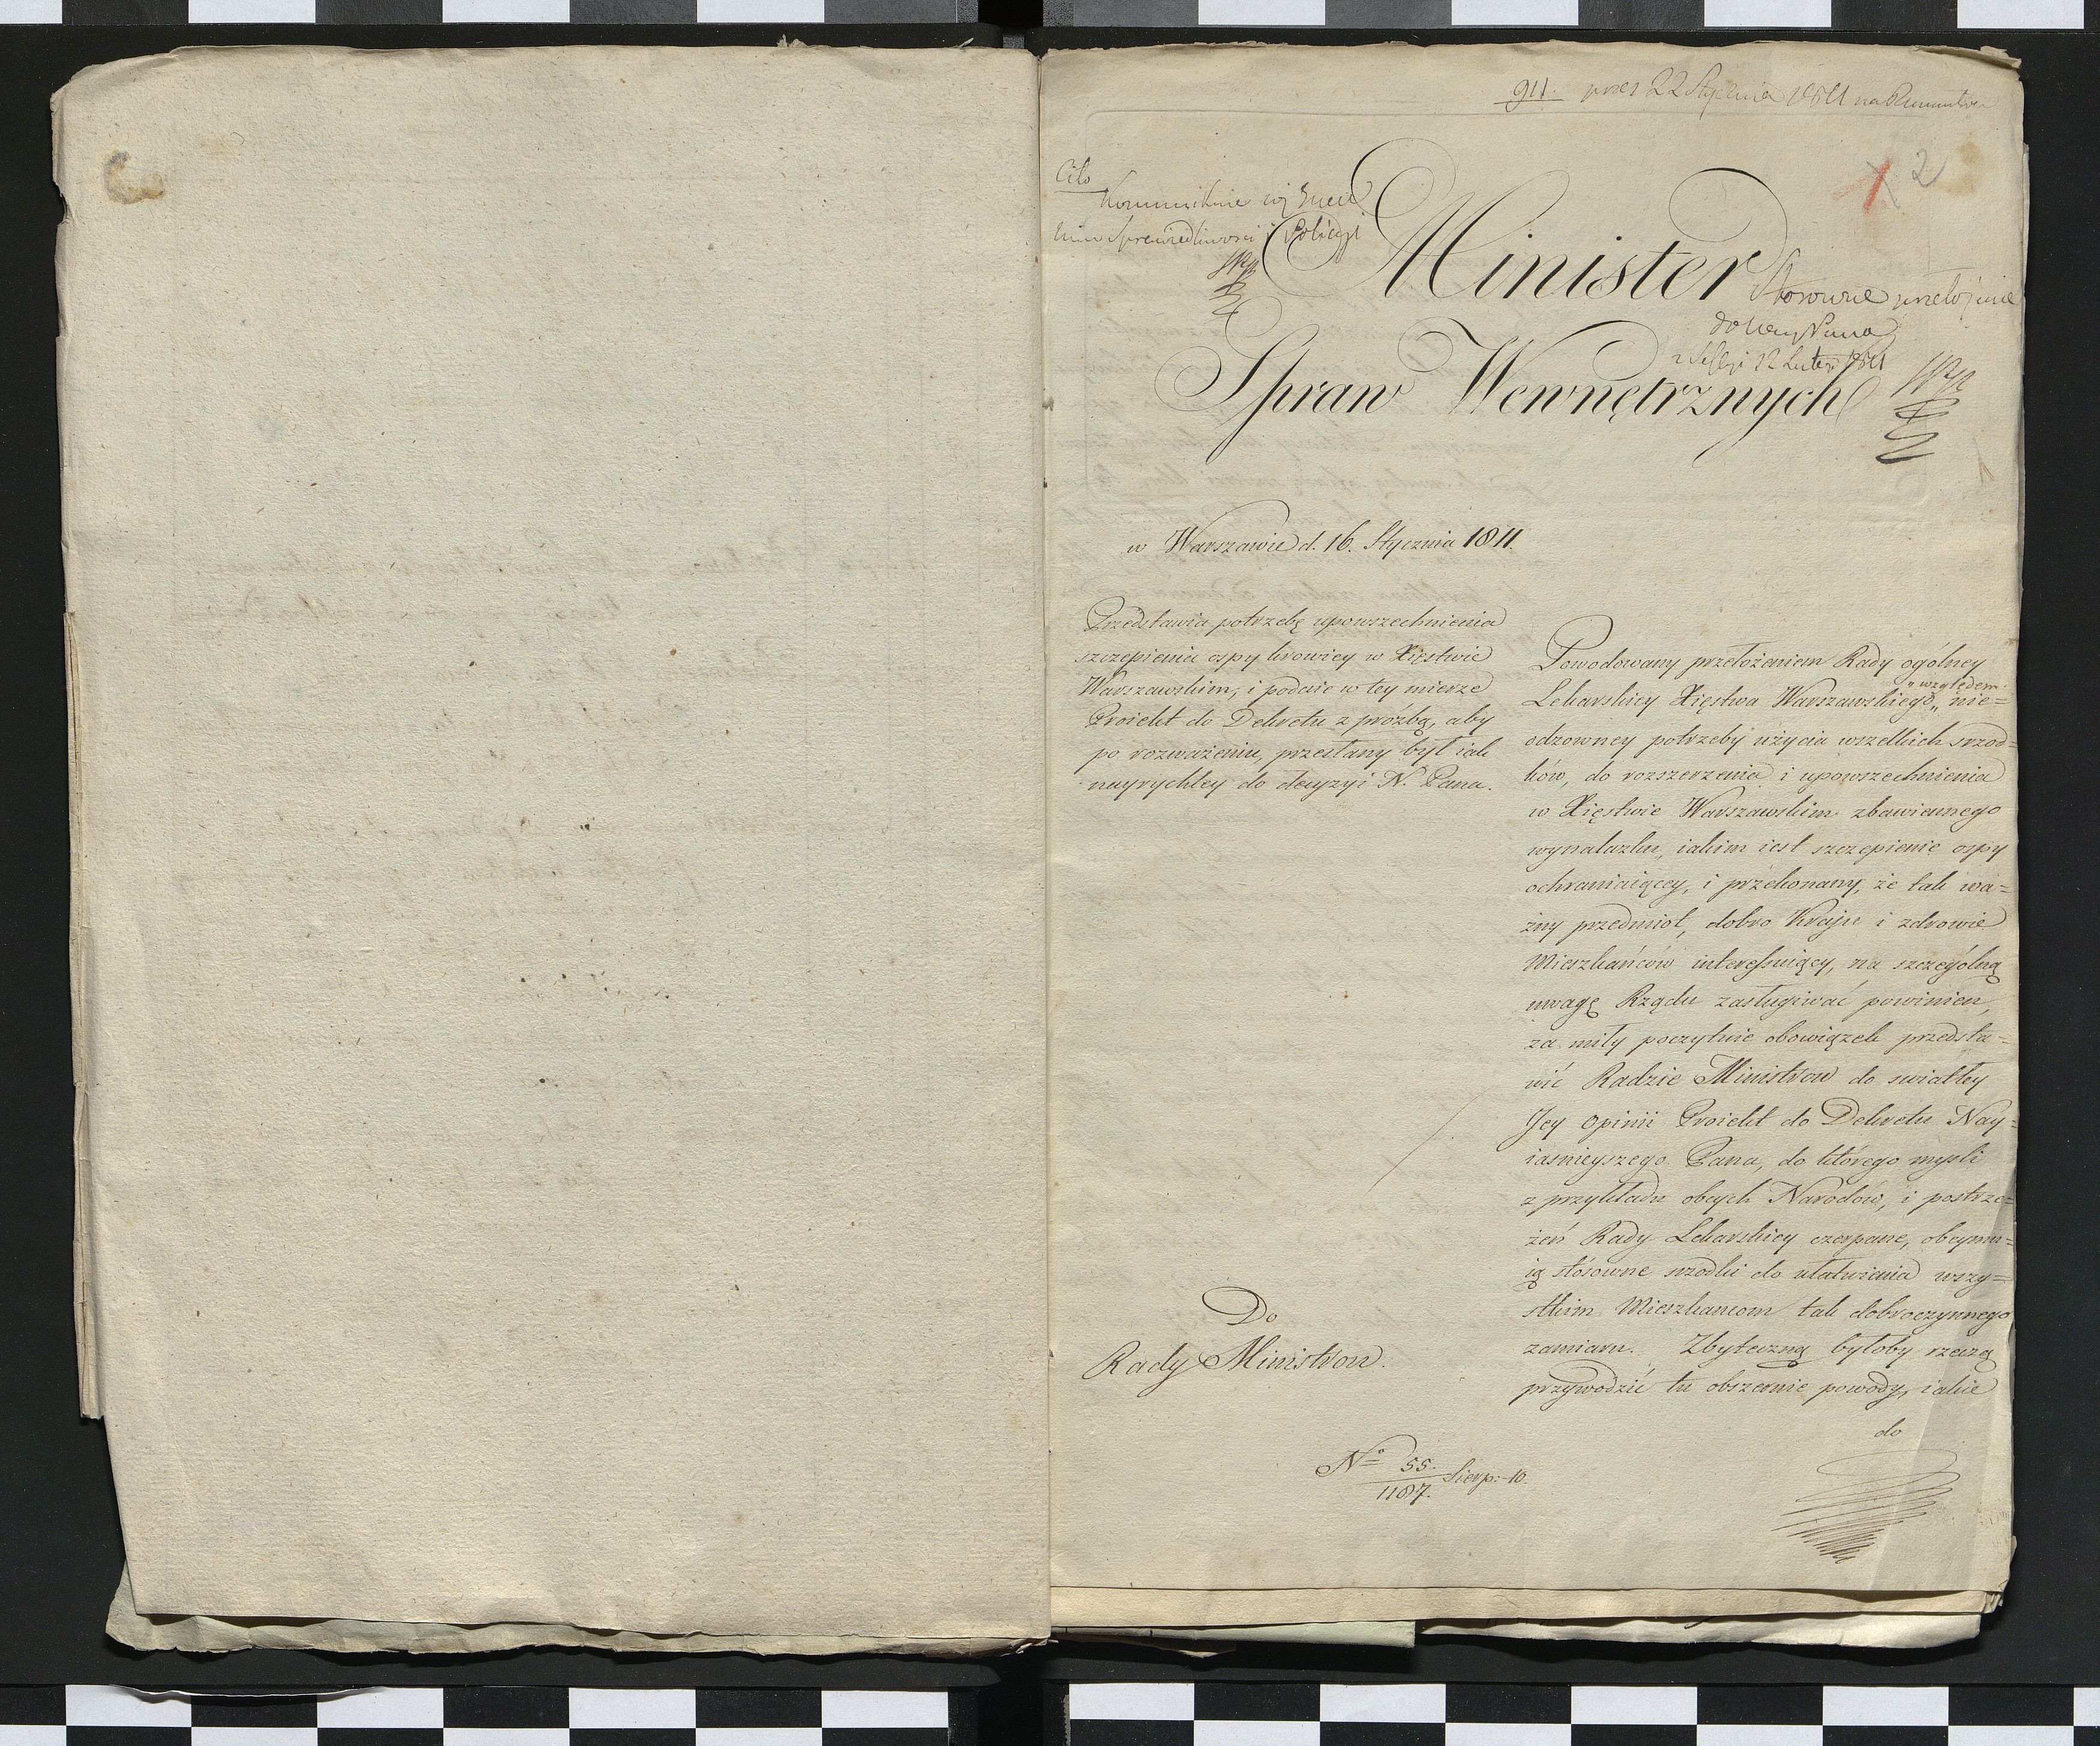 911. 22 Stycznia 1811
2
Cito
Sprawiedliwosci i Policyi
Minister
Stosowne przełożenie
do Nay Pana
z Sessyi 12 Lutego 1811
Spraw Wewnętrznych
w Warszawie d. 16. Stycznia 1811.
Przedstawia potrzebę upowszechnienia
szczepienia ospy krowiey w Xięstwie
Warszawskim, i podaie w tey mierze
Proiekt do Dekretu z prózbą, aby
po rozważeniu, przesłany był iak
nayrychley do decyzyi N. Pana.
Do
Rady Ministrow.
Nº 55.
1187. Sierp: 10.
Powodowany przełożeniem Rady ogólney
Lekarskiey Xięstwa Warszawskiego „względem„ nie=
odzowney potrzeby użycia wszelkich srzod=
ków, do rozszerzenia i upowszechnienia
w Xięstwie Warszawskim zbawiennego
wynalazku, iakim iest szczepienie ospy
ochraniaiącey, i przekonany, że tak wa=
żny przedmiot, dobro Kraju i zdrowie
Mieszkańców interessuiący, na szczególną
uwagę Rządu zasługiwać powinien,
za miły poczytuie obowiązek przedsta=
wić Radzie Ministrow do swiatłey
Jey opinii Proiekt do Dekretu Nay=
iasnieyszego Pana, do którego mysli
z przykładu obcych Narodów, i postrze=
żeń Rady Lekarskiey czerpane, obeymu=
ią stósowne srzodki do ułatwienia wszy=
stkim Mieszkancom tak dobroczynnego
zamiaru. Zbyteczną byłoby rzeczą
przywodzić tu obszernie powody, iakie
do